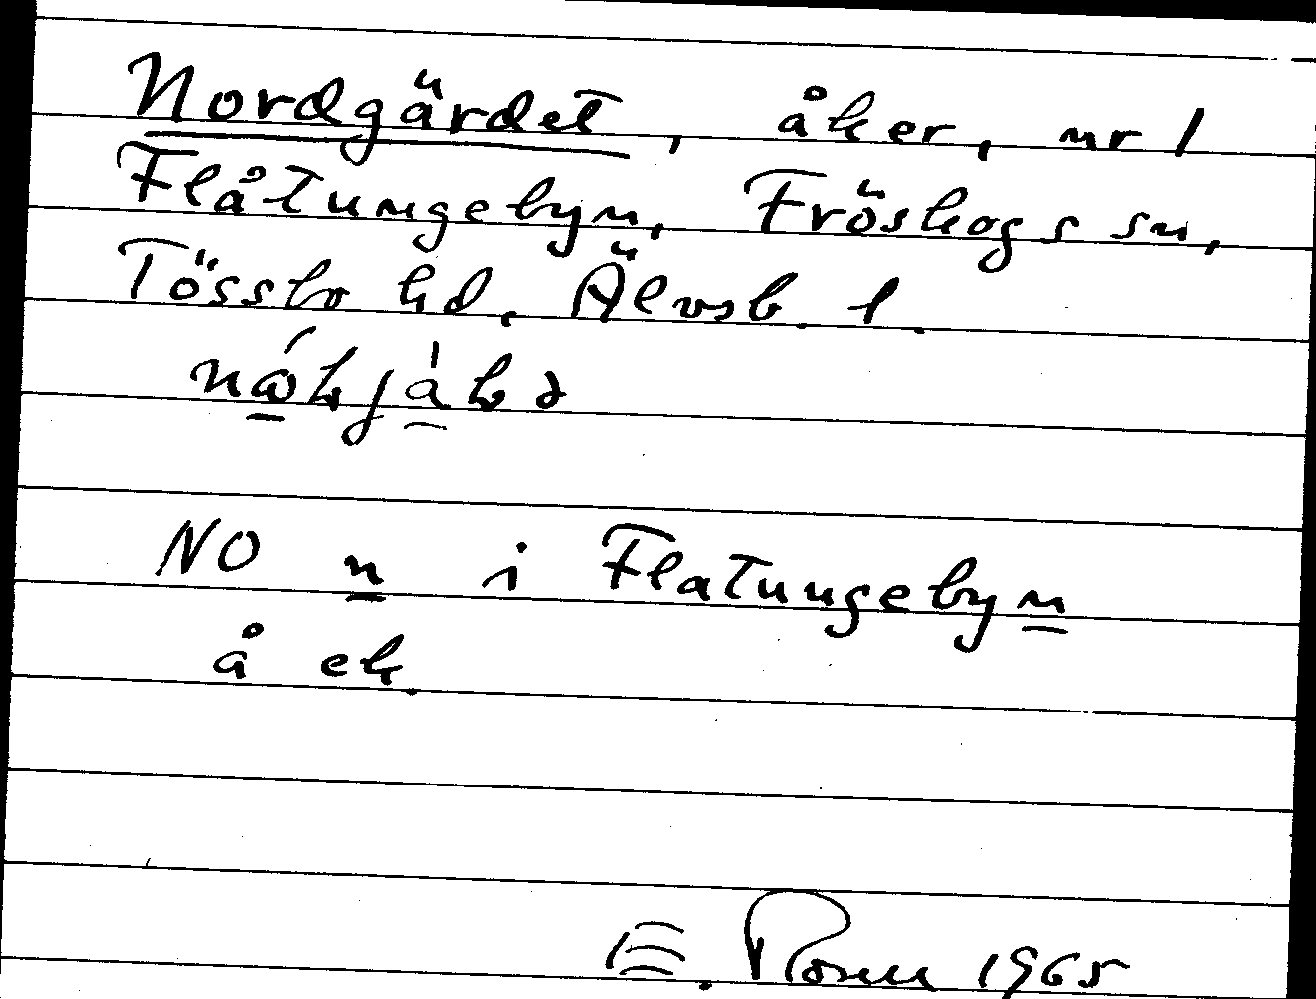 Nordgärdet, åker, nr 1
Flåtungebyn, Fröskogs sn,
Tössbo hd, Älvsb. l.
NO n i Flatungebyn
å ek.
E. 1965